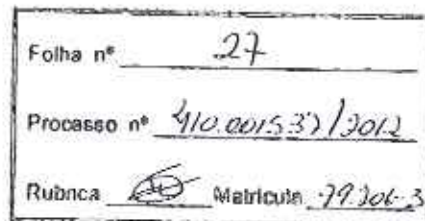 Folha nº 27
Processo nº 410.001537/2012
Rubrica Matrícula 79.306-3